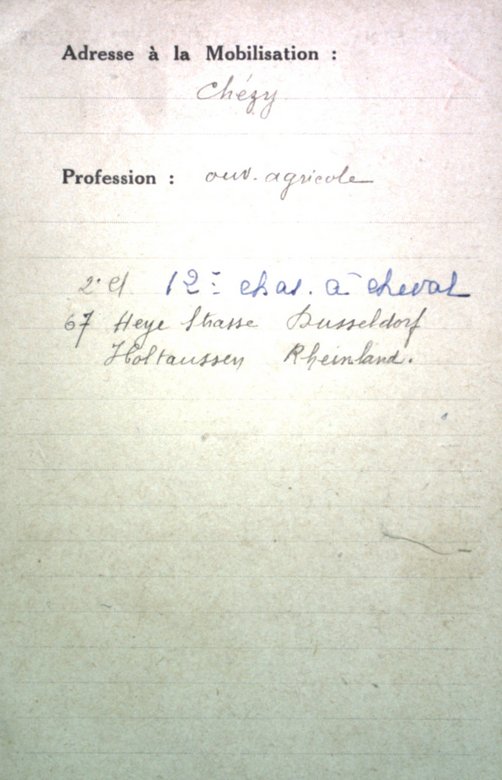 Adresse à la Mobilisation :
Chézy
Profession : ouv. agricole
2e Cl 12e chas. à cheval
67 Heye Strasse Dusseldorf
Holtaussen Rheinland.